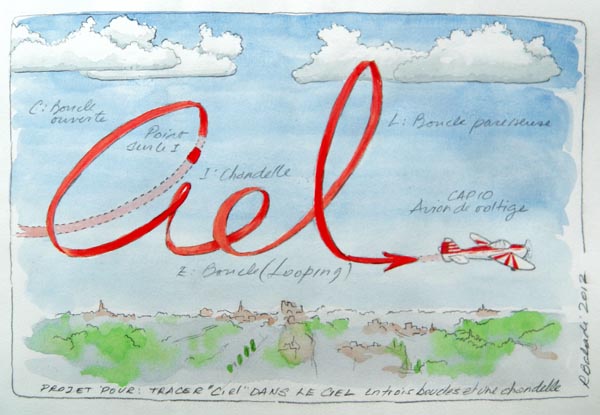 C: Boucle
ouverte
Point
sur le I
I: Chandelle
L: Boucle paresseuse
CAP 10
Avion de voltige
Ciel
E: Boucle (Looping)
PROJET POUR: TRACER "CIEL" DANS LE CIEL en trois boucles et une chandelle
2012